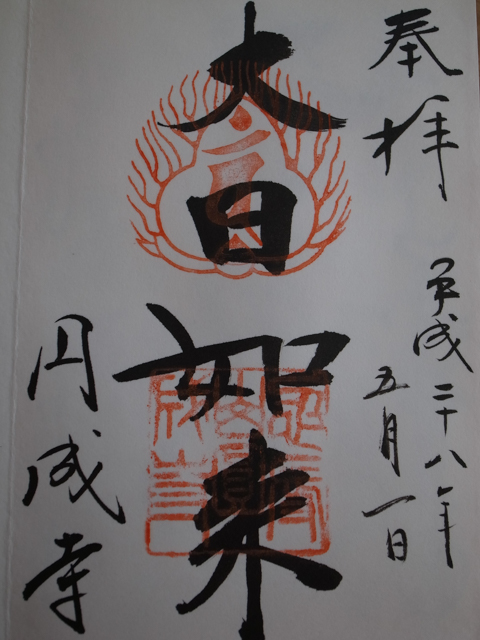 奉拝
平成二十八年
五月一日
大日如来
円成寺